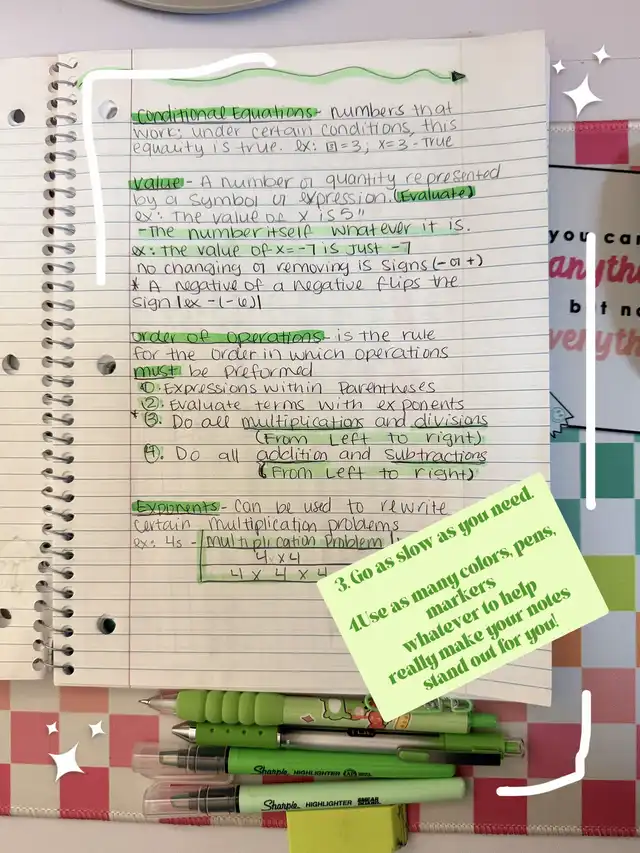 Conditional Equations - numbers that
work; under certain conditions, this
equality is true. ex: x=3; x=3 - True
Value - A number or quantity represented
by a symbol or expression. (Evaluate)
ex: "The value of x is 5"
- The number itself whatever it is.
ex: the value of x = -7 is just -7
no changing or removing is signs (- or +)
* A negative of a negative flips the
sign |ex -(-6)|
Order of Operations - is the rule
for the order in which operations
must be preformed
①: Expressions within Parentheses
②: Evaluate terms with exponents
*③: Do all multiplications and divisions
(From Left to right)
④: Do all addition and Subtractions
(From Left to right)
Exponents - can be used to rewrite
certain multiplication problems
ex: 4s - multiplication Problem
4 x 4
4 x 4 x 4
3. Go as slow as you need.
4.Use as many colors, pens,
markers
whatever to help
really make your notes
stand out for you!
you can
anyth
but no
veryth
Sharpie HIGHLIGHTER
Sharpie HIGHLIGHTER SMEAR GUARD